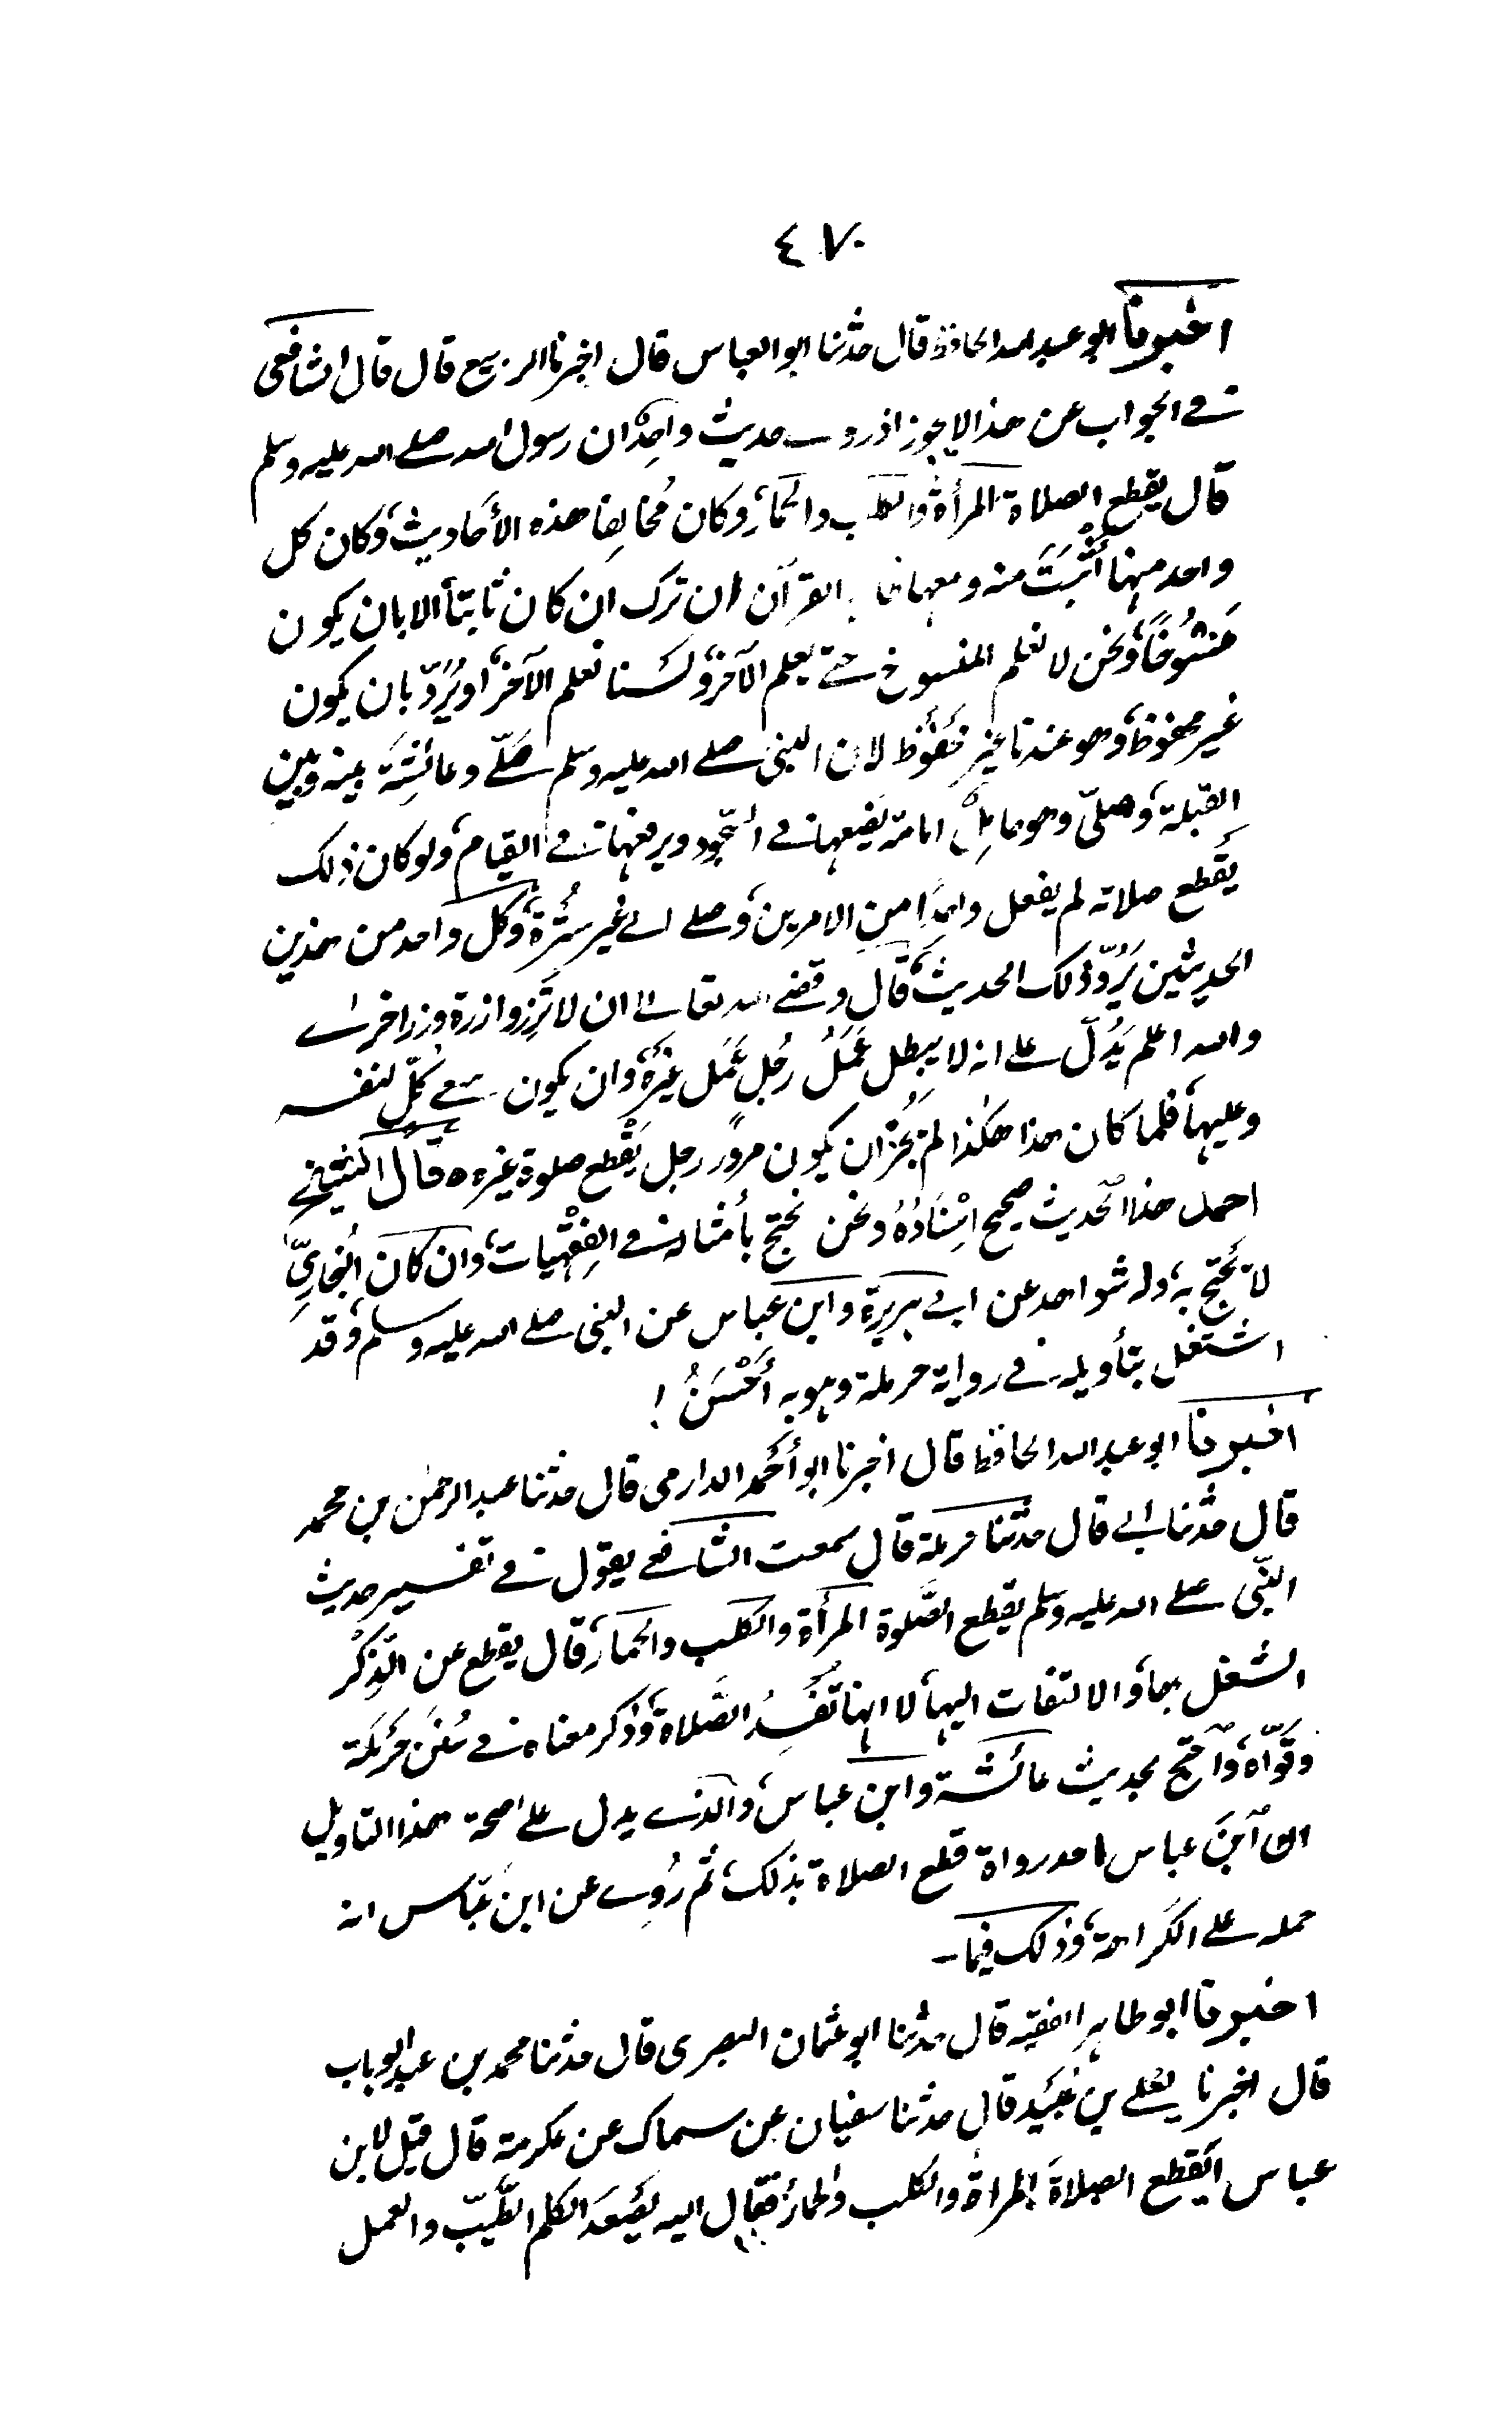 ٤٧٠
اخبرنا ابو عبد الله الحافظ قال حدثنا ابو العباس قال اخبرنا الربيع قال قال الشافعي
في الجواب عن هذا لا يجوز اذ روي حديث واحد ان رسول الله صلى الله عليه وسلم
قال يقطع الصلاة المرأة والكلب والحمار، وكان مخالفا هذه الأحاديث، وكان كل
واحد منها أَثْبَتَ منه ومعها ظاهر القرآن ان ترك ان كان ثابتاً الا بان يكون
منسُوخاً، ونحن لا نعلم المنسوخ حتى يعلم الآخر، ولسنا نعلم الآخر، أو يُرَدّ بان يكون
غير محفوظ، وهو عندنا غير محفوظ لان النبي صلى الله عليه وسلم صَلّى وعائشة بينه وبين
القبلة، وصلّى وهو حامِلٌ امامة يضعها في السجود ويرفعها في القيام، ولو كان ذلك
يقطع صلاته لم يفعل واحدًا من الامرين، وصلى الى غير سُترة، وكل واحد من هذين
الحديثين يَرُدّ ذلك الحديث، قال وقضى الله تعالى ان لا تزر وازرة وزر اخرى
والله اعلم يَدُلّ على انه لا يبطل عَمَلُ رجُلٍ عَمَل غيره، وان يكون سعي كلّ لنفسه
وعليها، فلما كان هذا هكذا لم يجُز ان يكون مرور رجل يَقْطع صلوة غيره ٥ قال الشيخ
احمد هذا الحديث صحيح اِسْنَادُهُ ونحن نحتج بأمثاله في الفِقْهِيات، وان كان البُخاريّ
لا يحتج به، وله شواهد عن ابي هريرة وابن عباس عن النبي صلى الله عليه وسلم، وقد
اشتغل بتأويله في رواية حرملة وهو به أَحْسَنُ !
اخبرنا ابو عبد الله الحافظ قال اخبرنا ابو أحمد الدارمي قال حدثنا عبد الرحمٰن بن محمد
قال حدثنا ابي قال حدثنا حرملة قال سمعت الشافعي يقول في تفسير حديث
النبّي صلى الله عليه وسلم يقطع الصّلوة المرأة والكلب والحمار، قال يقطع عن الذِكْر
الشغل بها، والالتفات اليها، لا انها تُفسِدُ الصّلاة، وذكر معناه في سُنَن حرملة
وقوّاه، واحتج بحديث عائشة وابن عباس، والذي يدل على صحة هذا التاويل
ان ابنَ عباس احد رواة قطع الصلاة بذلك، ثم رُوِي عن ابن عبّاس انه
حمله على الكراهة، وذلك فيما ـ
اخبرنا ابو طاهر الفقيه قال حدثنا ابو عثمان البصرى قال حدثنا محمد بن عبد الوهاب
قال اخبرنا يعلى بن عُبَيد قال حدثنا سفيان عن سماك عن عكرمة قال قيل لابن
عباس أيقطع الصلاةَ المرأةُ والكلب والحمار، فقال اليه يصْعَد الكلم الطّيّب والعمل